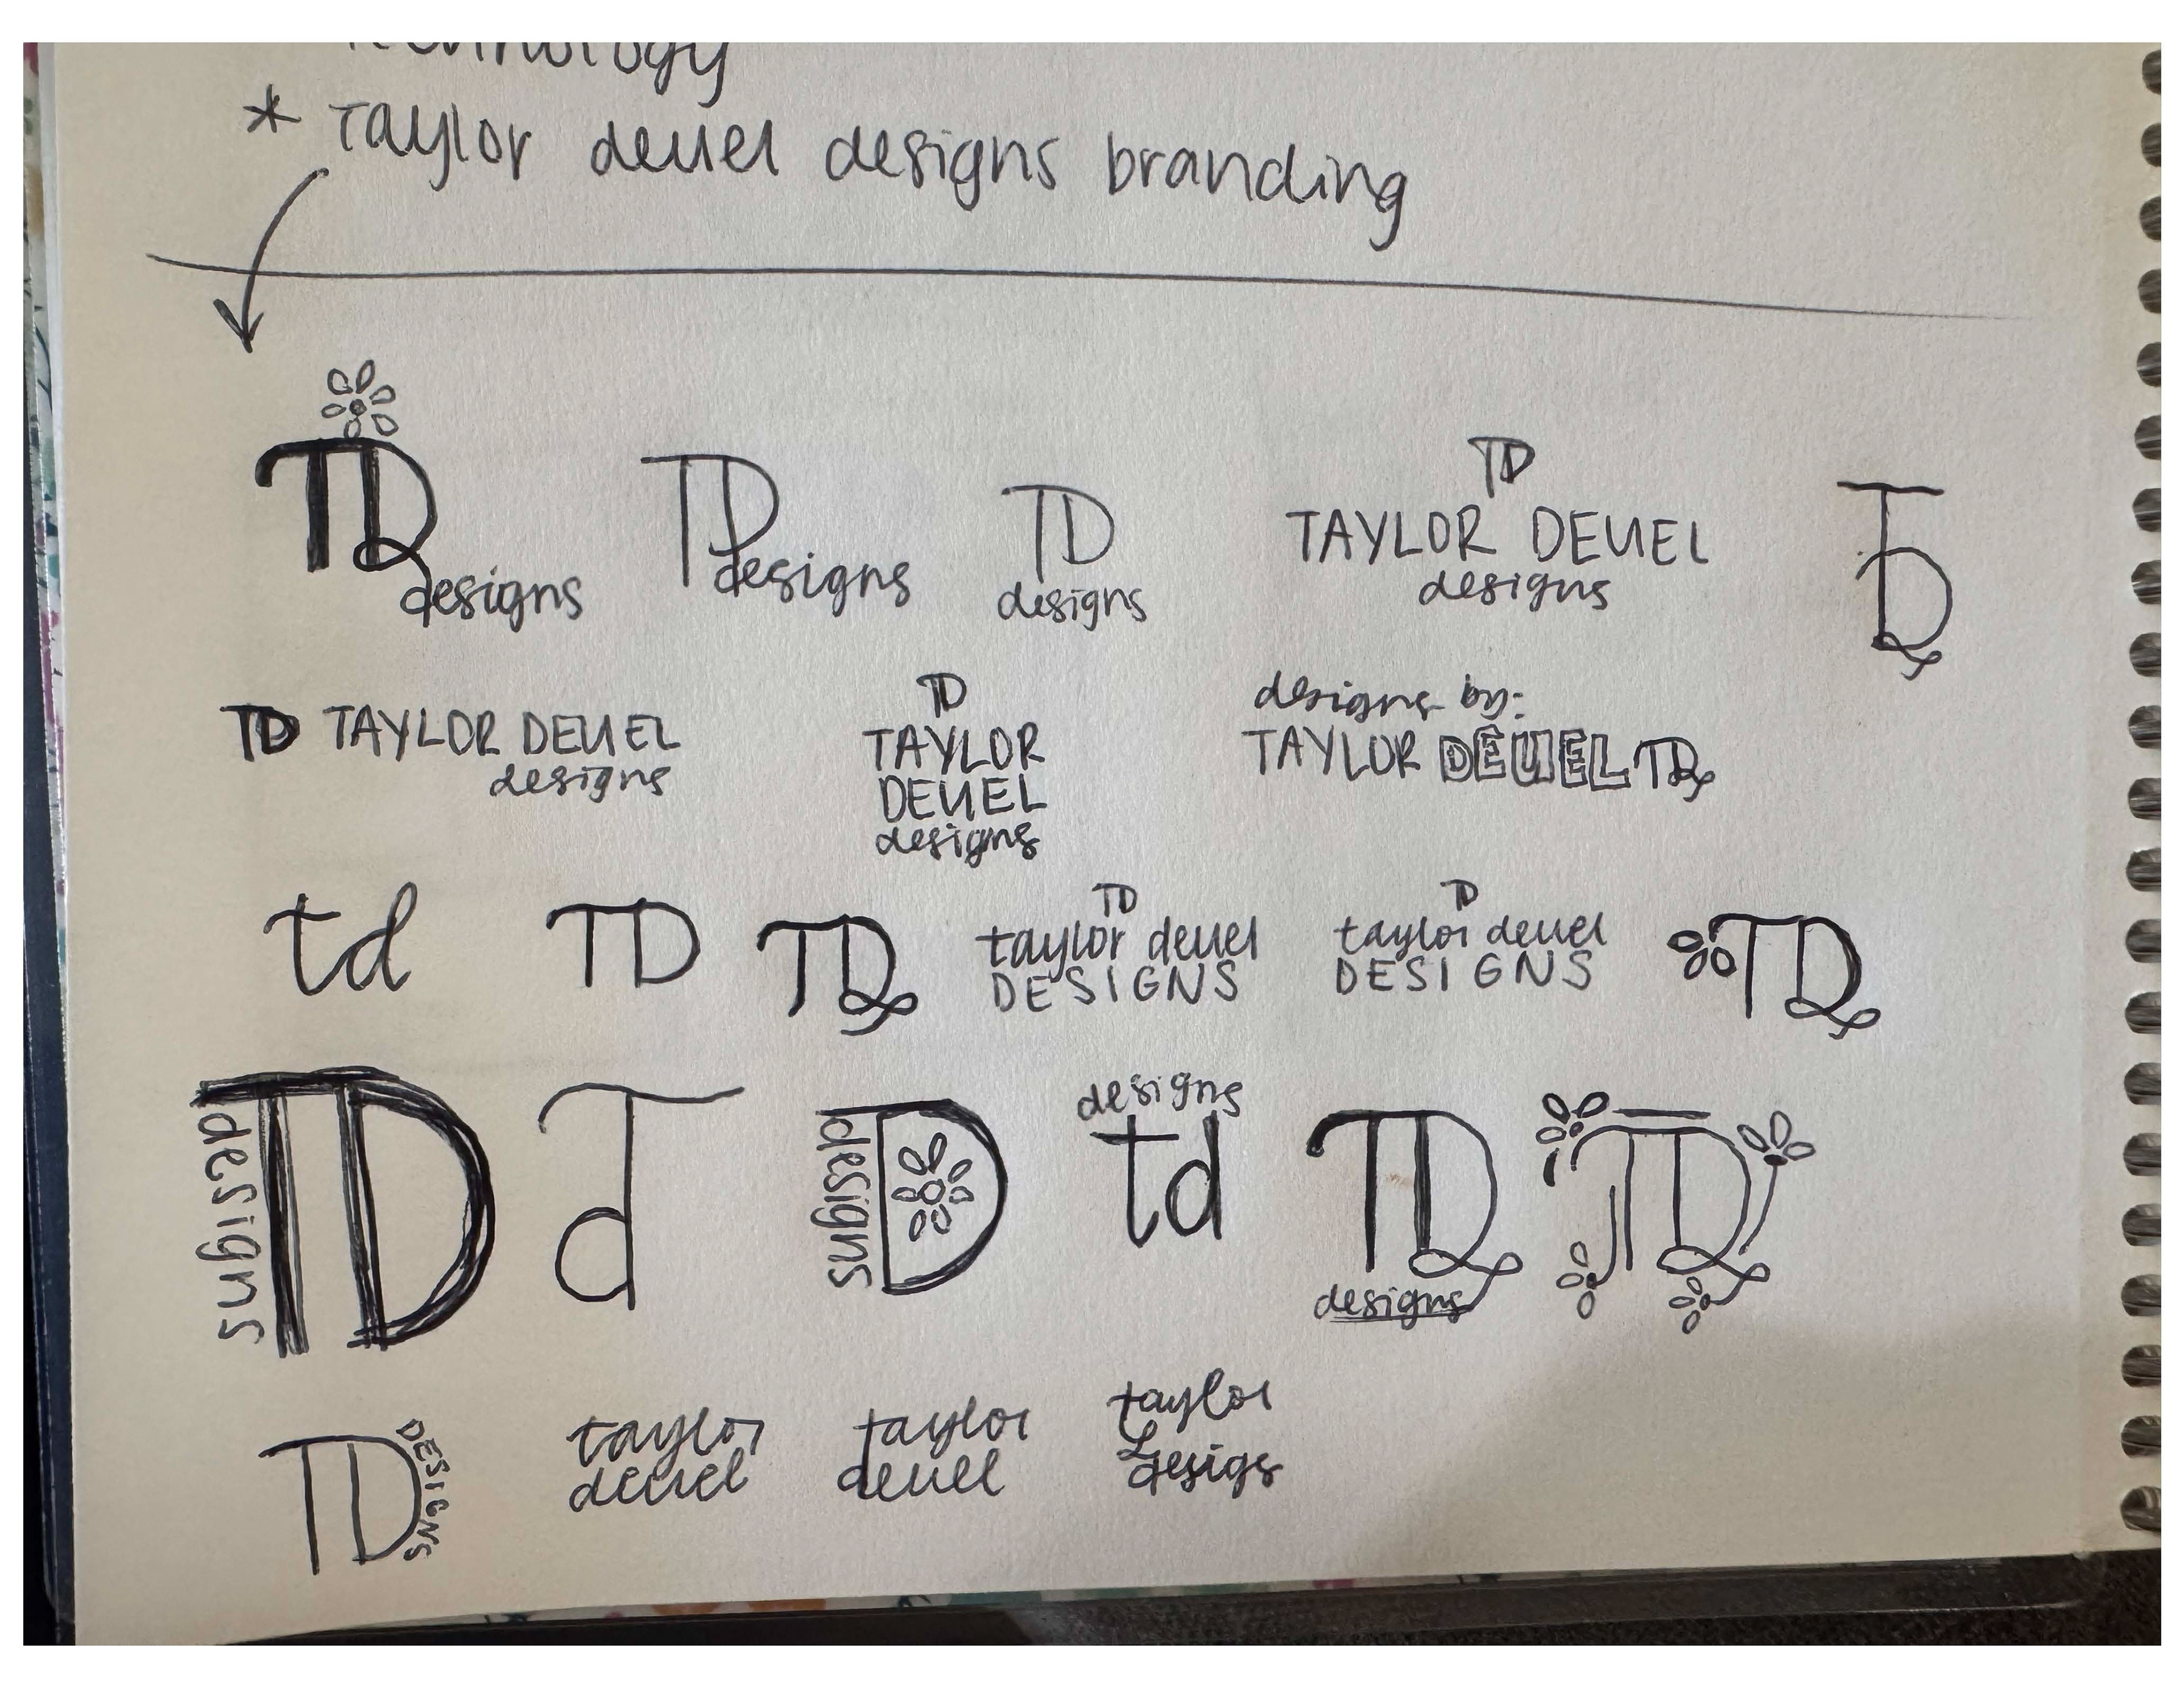 technology
* Taylor deuel designs branding
TD designs
TDesigns
TD
designs
TD
TAYLOR DEUEL
designs
TD
TD TAYLOR DEUEL
designs
TD
TAYLOR
DEUEL
designs
designs by:
TAYLOR DEUEL TD
td
TD
TD
TD
taylor deuel
DESIGNS
TD
taylor deuel
DESIGNS
TD
designs TD
Td
designs D
designs
td
TD
designs
TD
TD DESIGNS
taylor
deuel
taylor
deuel
taylor
desigs